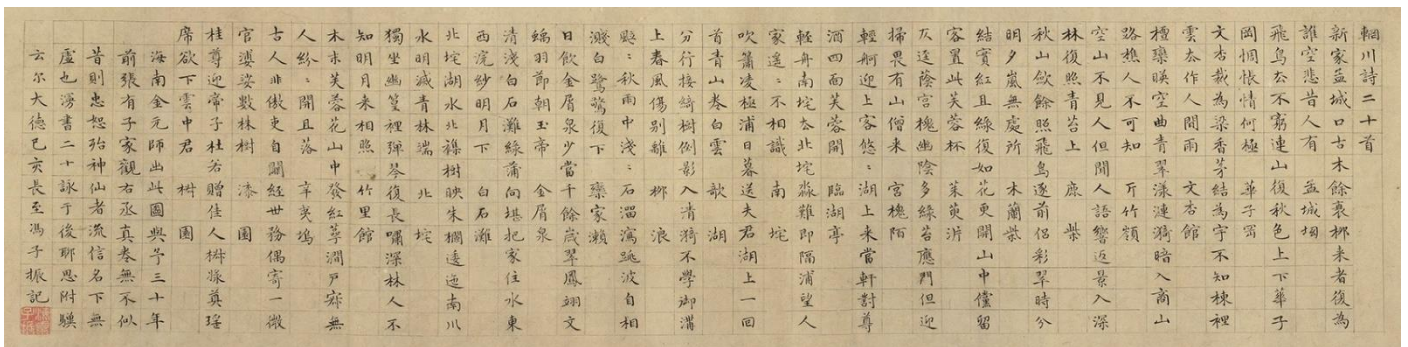 輞川詩二十首
新家孟城口古木餘衰柳来者復為
誰空悲昔人有 孟城坳
飛鳥去不窮連山復秋色上下華子
岡惆悵情何極 華子岡
文杏裁為梁香茅結為宇不知棟裡
雲去作人間雨 文杏館
檀欒暎空曲青翠漾漣漪暗入商山
路樵人不可知 斤竹嶺
空山不見人但聞人語響返景入深
林復照青苔上 鹿柴
秋山歛餘照飛鳥逐前侣彩翠時分
明夕嵐無處所 木蘭柴
結實紅且綠復如花更開山中儻留
客置此芙蓉杯 茱萸沜
仄逕陰宮槐幽陰多綠苔應門但迎
掃畏有山僧来 宮槐陌
輕舸迎上客悠〻湖上来當軒對尊
酒四面芙蓉開 臨湖亭
輕舟南垞去北垞淼難即隔浦望人
家遥〻不相識 南垞
吹簫凌極浦日暮送夫君湖上一回
首青山卷白雲 欹湖
分行接綺樹倒影入清漪不學御溝
上春風傷别離 柳浪
颭〻秋雨中淺〻石溜瀉跳波自相
濺白鷺驚復下 欒家瀨
日飲金屑泉少當千餘歲翠鳳翊文
螭羽節朝玉帝 金屑泉
清淺白石灘綠蒲向堪把家住水東
西浣紗明月下 白石灘
北垞湖水北雜樹映朱欄逶迤南川
水明滅青林端 北垞
獨坐幽篁裡彈琴復長嘯深林人不
知明月来相照 竹里館
木末芙蓉花山中發紅萼澗戶寂無
人紛〻開且落 辛夷塢
古人非傲吏自闕經世務偶寄一微
官婆娑數株樹 漆園
桂尊迎帝子杜若贈佳人椒漿奠瑤
席欲下雲中君 椒園
海南金元師出此圖與予三十年
前張有子家觀右丞真卷無不似
昔則忠恕殆神仙者流信名下無
虛也漫書二十詠于後聊思附驥
云尔大德己亥長至馮子振記